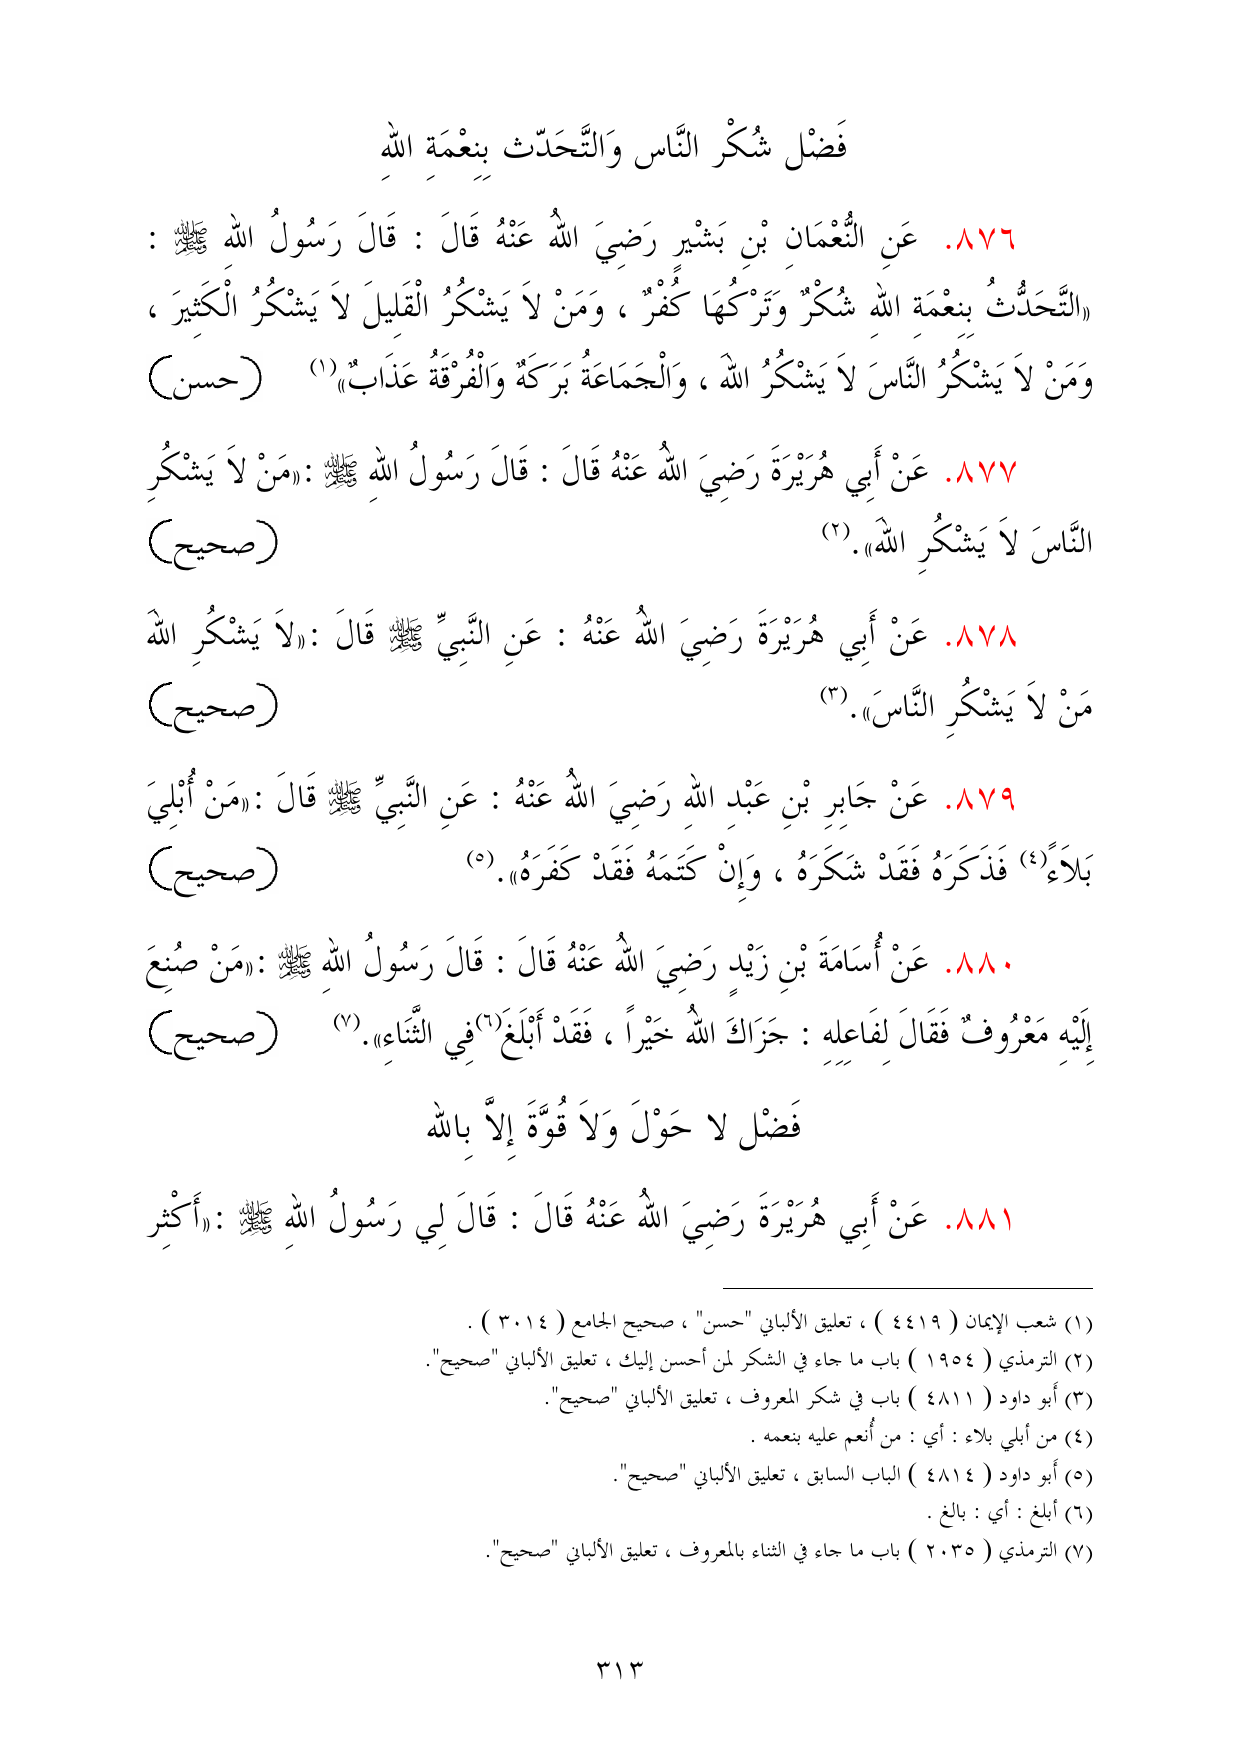 فَضْل شُكْر النَّاس وَالتَّحَدّث بِنِعْمَةِ اللهِ
٨٧٦. عَنِ النُّعْمَانِ بْنِ بَشْيرٍ رَضِيَ اللهُ عَنْهُ قَالَ : قَالَ رَسُولُ اللهِ ﷺ :
«التَّحَدُّثُ بِنِعْمَةِ اللهِ شُكْرٌ وَتَرْكُهَا كُفْرٌ ، وَمَنْ لاَ يَشْكُرُ الْقَلِيلَ لاَ يَشْكُرُ الْكَثِيرَ ،
وَمَنْ لاَ يَشْكُرُ النَّاسَ لاَ يَشْكُرُ اللهَ ، وَالْجَمَاعَةُ بَرَكَةٌ وَالْفُرْقَةُ عَذَابٌ»(١) (حسن)
٨٧٧. عَنْ أَبِي هُرَيْرَةَ رَضِيَ اللهُ عَنْهُ قَالَ : قَالَ رَسُولُ اللهِ ﷺ :«مَنْ لاَ يَشْكُرِ
النَّاسَ لاَ يَشْكُرِ اللهَ».(٢) (صحيح)
٨٧٨. عَنْ أَبِي هُرَيْرَةَ رَضِيَ اللهُ عَنْهُ : عَنِ النَّبِيِّ ﷺ قَالَ :«لاَ يَشْكُرِ اللهَ
مَنْ لاَ يَشْكُرِ النَّاسَ».(٣) (صحيح)
٨٧٩. عَنْ جَابِرِ بْنِ عَبْدِ اللهِ رَضِيَ اللهُ عَنْهُ : عَنِ النَّبِيِّ ﷺ قَالَ :«مَنْ أُبْلِيَ
بَلاَءً(٤) فَذَكَرَهُ فَقَدْ شَكَرَهُ ، وَإِنْ كَتَمَهُ فَقَدْ كَفَرَهُ».(٥) (صحيح)
٨٨٠. عَنْ أُسَامَةَ بْنِ زَيْدٍ رَضِيَ اللهُ عَنْهُ قَالَ : قَالَ رَسُولُ اللهِ ﷺ :«مَنْ صُنِعَ
إِلَيْهِ مَعْرُوفٌ فَقَالَ لِفَاعِلِهِ : جَزَاكَ اللهُ خَيْراً ، فَقَدْ أَبْلَغَ(٦)فِي الثَّنَاءِ».(٧) (صحيح)
فَضْل لا حَوْلَ وَلاَ قُوَّةَ إِلاَّ بِالله
٨٨١. عَنْ أَبِي هُرَيْرَةَ رَضِيَ اللهُ عَنْهُ قَالَ : قَالَ لِي رَسُولُ اللهِ ﷺ :«أَكْثِر
(١) شعب الإيمان ( ٤٤١٩ ) ، تعليق الألباني "حسن" ، صحيح الجامع ( ٣٠١٤ ) .
(٢) الترمذي ( ١٩٥٤ ) باب ما جاء في الشكر لمن أحسن إليك ، تعليق الألباني "صحيح".
(٣) أبو داود ( ٤٨١١ ) باب في شكر المعروف ، تعليق الألباني "صحيح".
(٤) من أبلي بلاء : أي : من أُنعم عليه بنعمه .
(٥) أبو داود ( ٤٨١٤ ) الباب السابق ، تعليق الألباني "صحيح".
(٦) أبلغ : أي : بالغ .
(٧) الترمذي ( ٢٠٣٥ ) باب ما جاء في الثناء بالمعروف ، تعليق الألباني "صحيح".
٣١٣